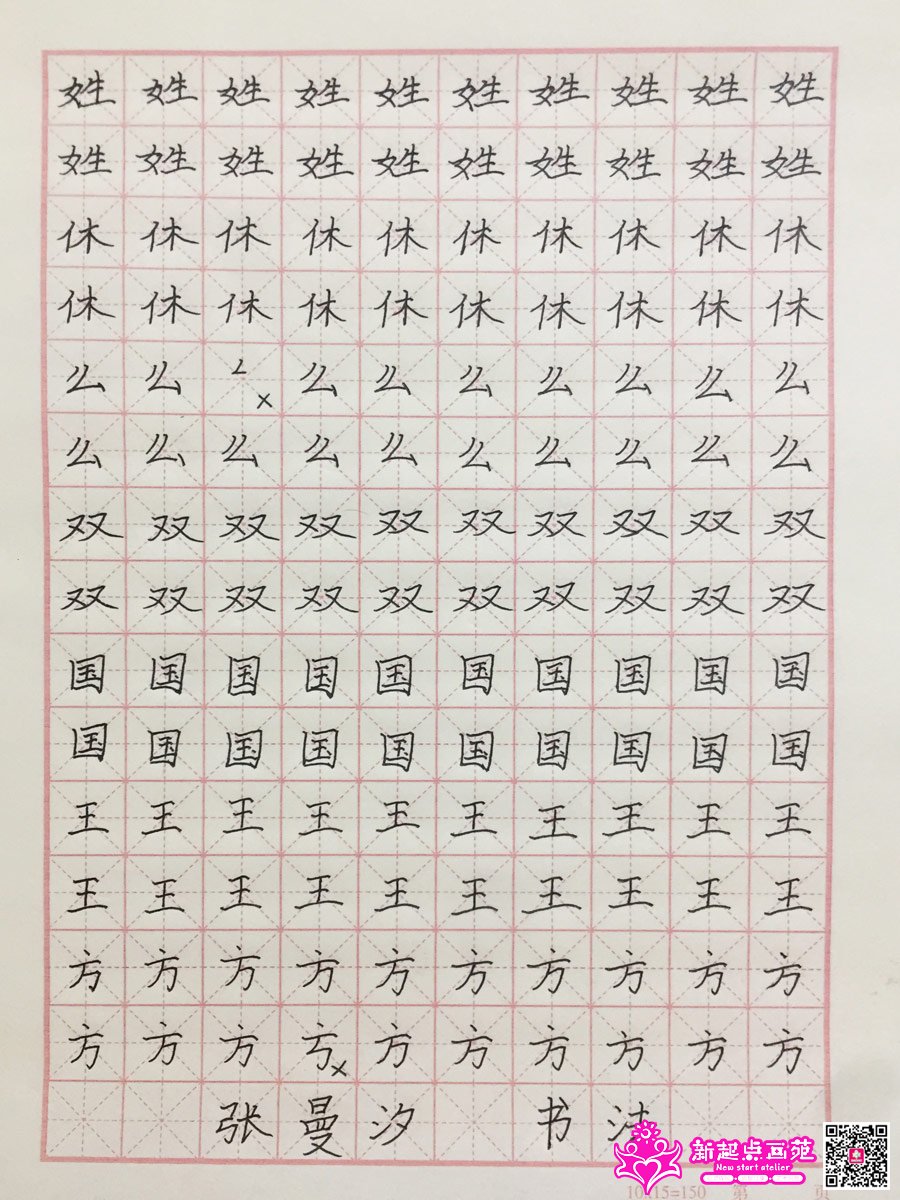 姓姓姓姓姓姓姓姓姓姓
姓姓姓姓姓姓姓姓姓姓
休休休休休休休休休休
休休休休休休休休休休
么么 × 么么么么么么么
么么么么么么么么么么
双双双双双双双双双双
双双双双双双双双双双
国国国国国国国国国国
国国国国国国国国国国
王王王王王王王王王王
王王王王王王王王王王
方方方方方方方方方方
方方方 × 方方方方方方
张曼汐 书法
新起点画苑
New start atelier
15=150 第 页